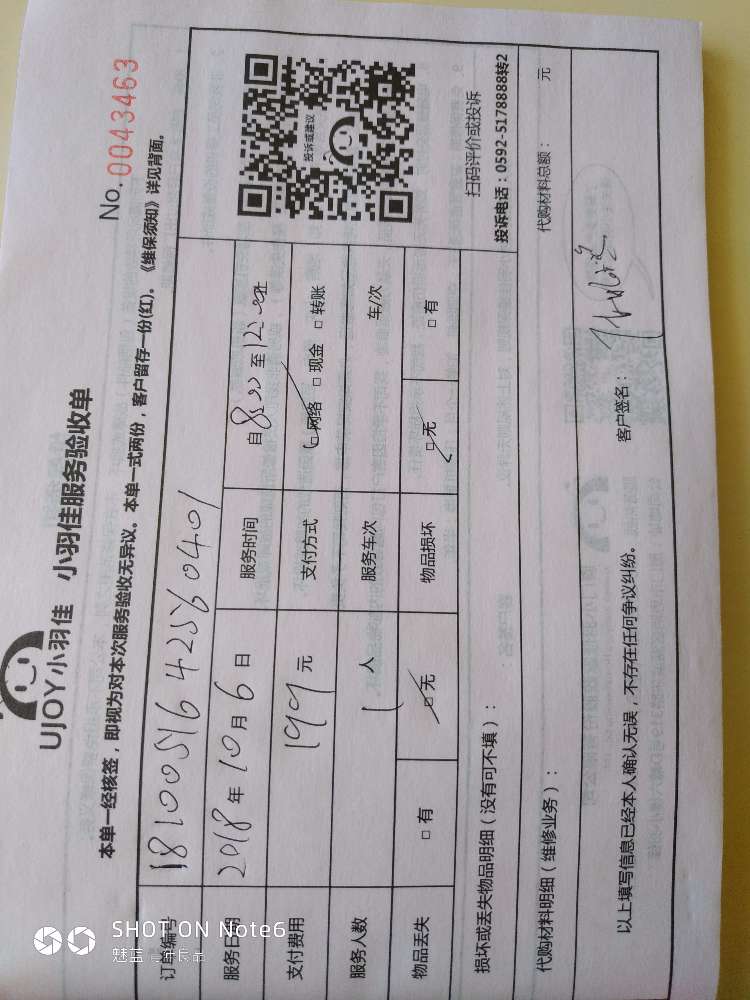 UJOY小羽佳 小羽佳服务验收单
No. 0043463
本单一经核签，即视为对本次服务验收无异议。本单一式两份，客户留存一份(红)。《维保须知》详见背面。
订单编号 1810051642560401
服务日期 2018年10月6日 服务时间 自8:00至12:00止
支付费用 199元 支付方式 □网络 □现金 □转账
服务人数 1人 服务车次 车/次
物品丢失 □有 □无 物品损坏 □无 □有
投诉或建议
扫码评价或投诉
投诉电话：0592-5178888转2
损坏或丢失物品明细（没有可不填）：
代购材料明细（维修业务）： 代购材料总额： 元
以上填写信息已经本人确认无误，不存在任何争议纠纷。 客户签名：
SHOT ON Note6
魅蓝